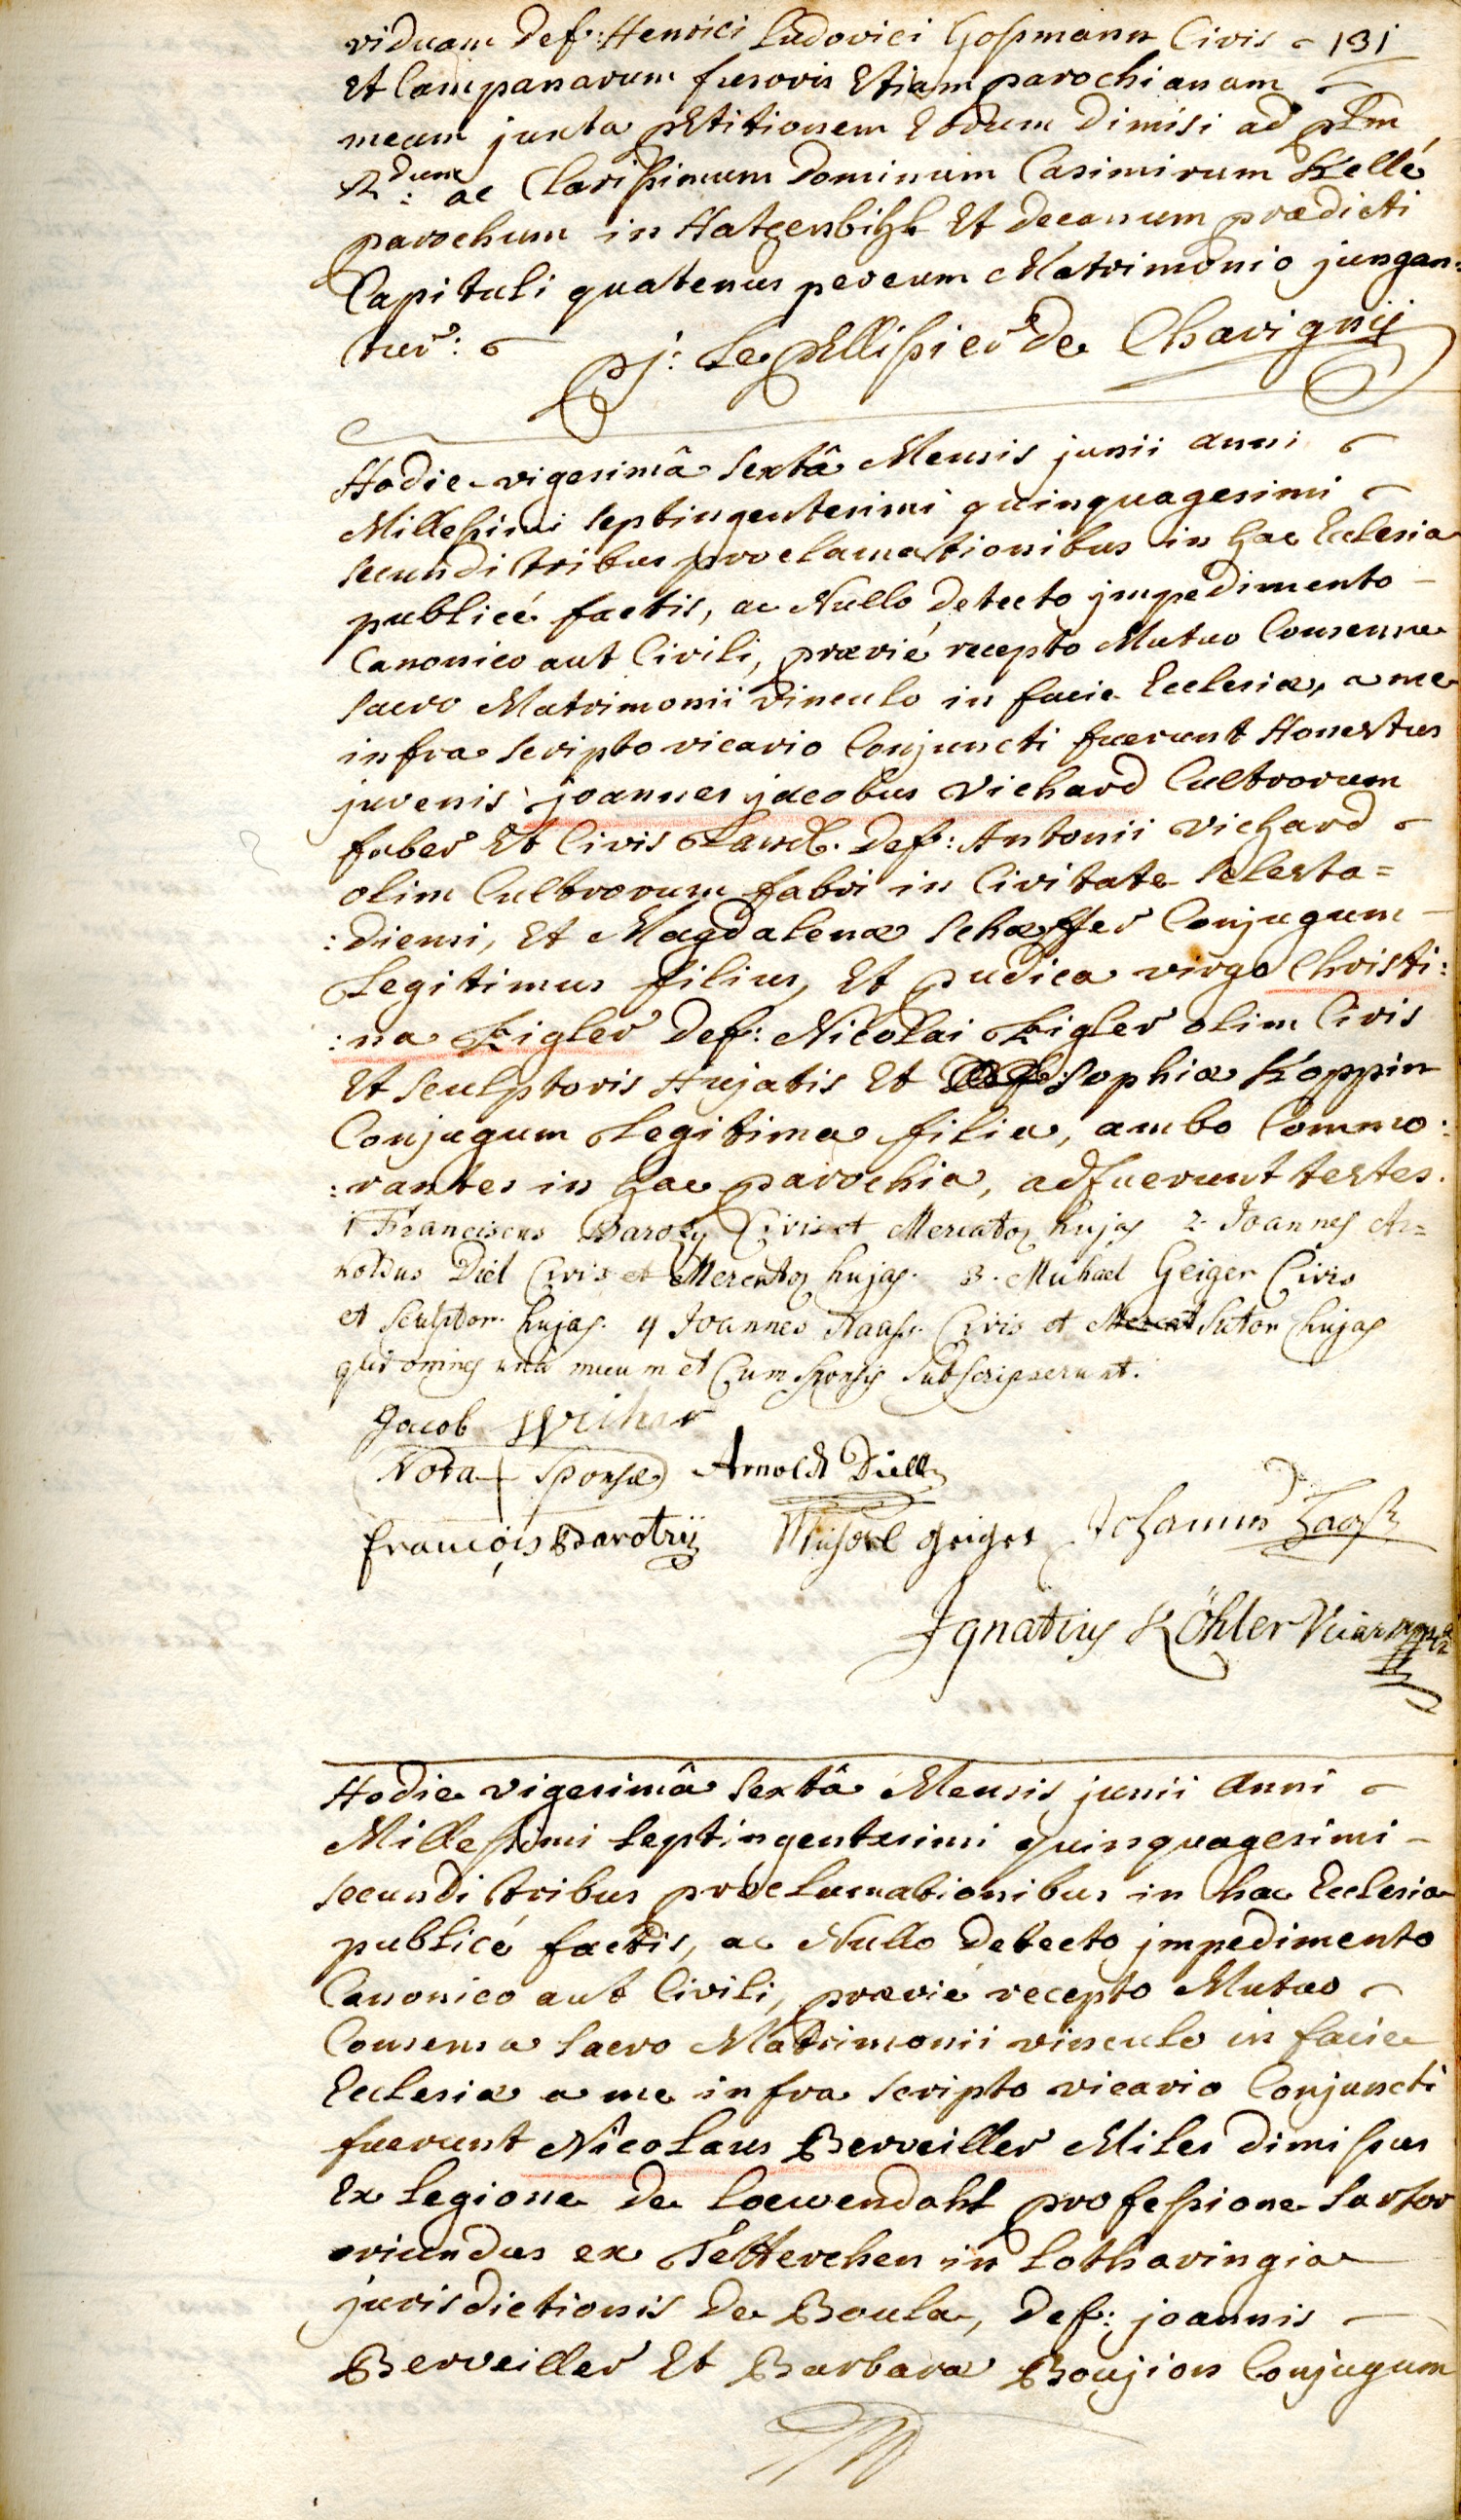 viduam Def: Henrici Ludovici Hoßmann Civis 131
Et Campanarum fusoris Etiam parochianam
meam juxta pEtitionem Eorum dimisi ad plm
Rdum: ac Clarißimum Dominum Casimirum Kellé
parochum in Hatgenbihl Et Decanum prædicti
Capituli quatenus per eum Matrimonio jungan:
tur:
pj: Le pEllißier De Chavignij
Hodie vigesimâ Sextâ Mensis junii anni
Milleßimi Septingentesimi quinquagesimi
secundi tribus proclamationibus in hac Ecclesia
publicé factis, ac Nullo detecto jmpedimento
Canonico aut Civili, prævié recepto Mutuo Consensu
sacro Matrimonii vinculo in facie Ecclesiæ, a me
infra scripto vicario Conjuncti fuerunt Honestus
juvenis joannes jacobus Vichard Cultrorum
faber Et Civis Land. Def: Antonii Vichard
olim Cultrorum fabri in Civitate Selesta=
:diensi, Et Magdalenæ Schæffer Conjugum
Legitimus filius, Et pudica virgo Christi:
:na Kigler Def: Nicolai Kigler olim Civis
Et sculptoris Hujatis Et Sophiæ Koppin
Conjugum Legitima filia, ambo Commo:
:rantes in hac parochia, adfuerunt testes.
1 Franciscus Barozy Civis et Mercator hujas 2. Joannes Ar=
noldus Diel Civis et Mercator hujas. 3. Michael Geiger Civis
et Sculptor hujas. 4 Joannes Haass Civis et Mercat Sutor hujas
qui omnes una mecum et Cum Sponsis Subscripserunt.
Jacob Wichar
Nota + Sponsæ Arnoldt Diell
françois Barotzij Michael Geiger Johannes Haaß
Ignatius Köhler Vicarius mppr
Hodie vigesimâ Sextâ Mensis junii Anni
Milleßimi Septingentesimi quinquagesimi
secundi tribus proclamationibus in hac Ecclesia
publicé factis, ac Nullo detecto jmpedimento
Canonico aut Civili, prævié recepto Mutuo
Consensu sacro Matrimonii vinculo in facie
Ecclesiæ a me infra scripto vicario Conjuncti
fuerunt Nicolaus Berveiller Miles dimißus
Ex Legione de Loewendahl profeßione sartor
oriundus ex Tetterchen in Lotharingia
jurisdictionis de Boula, Def: joannis
Berveiller Et Barbaræ Boujion Conjugum